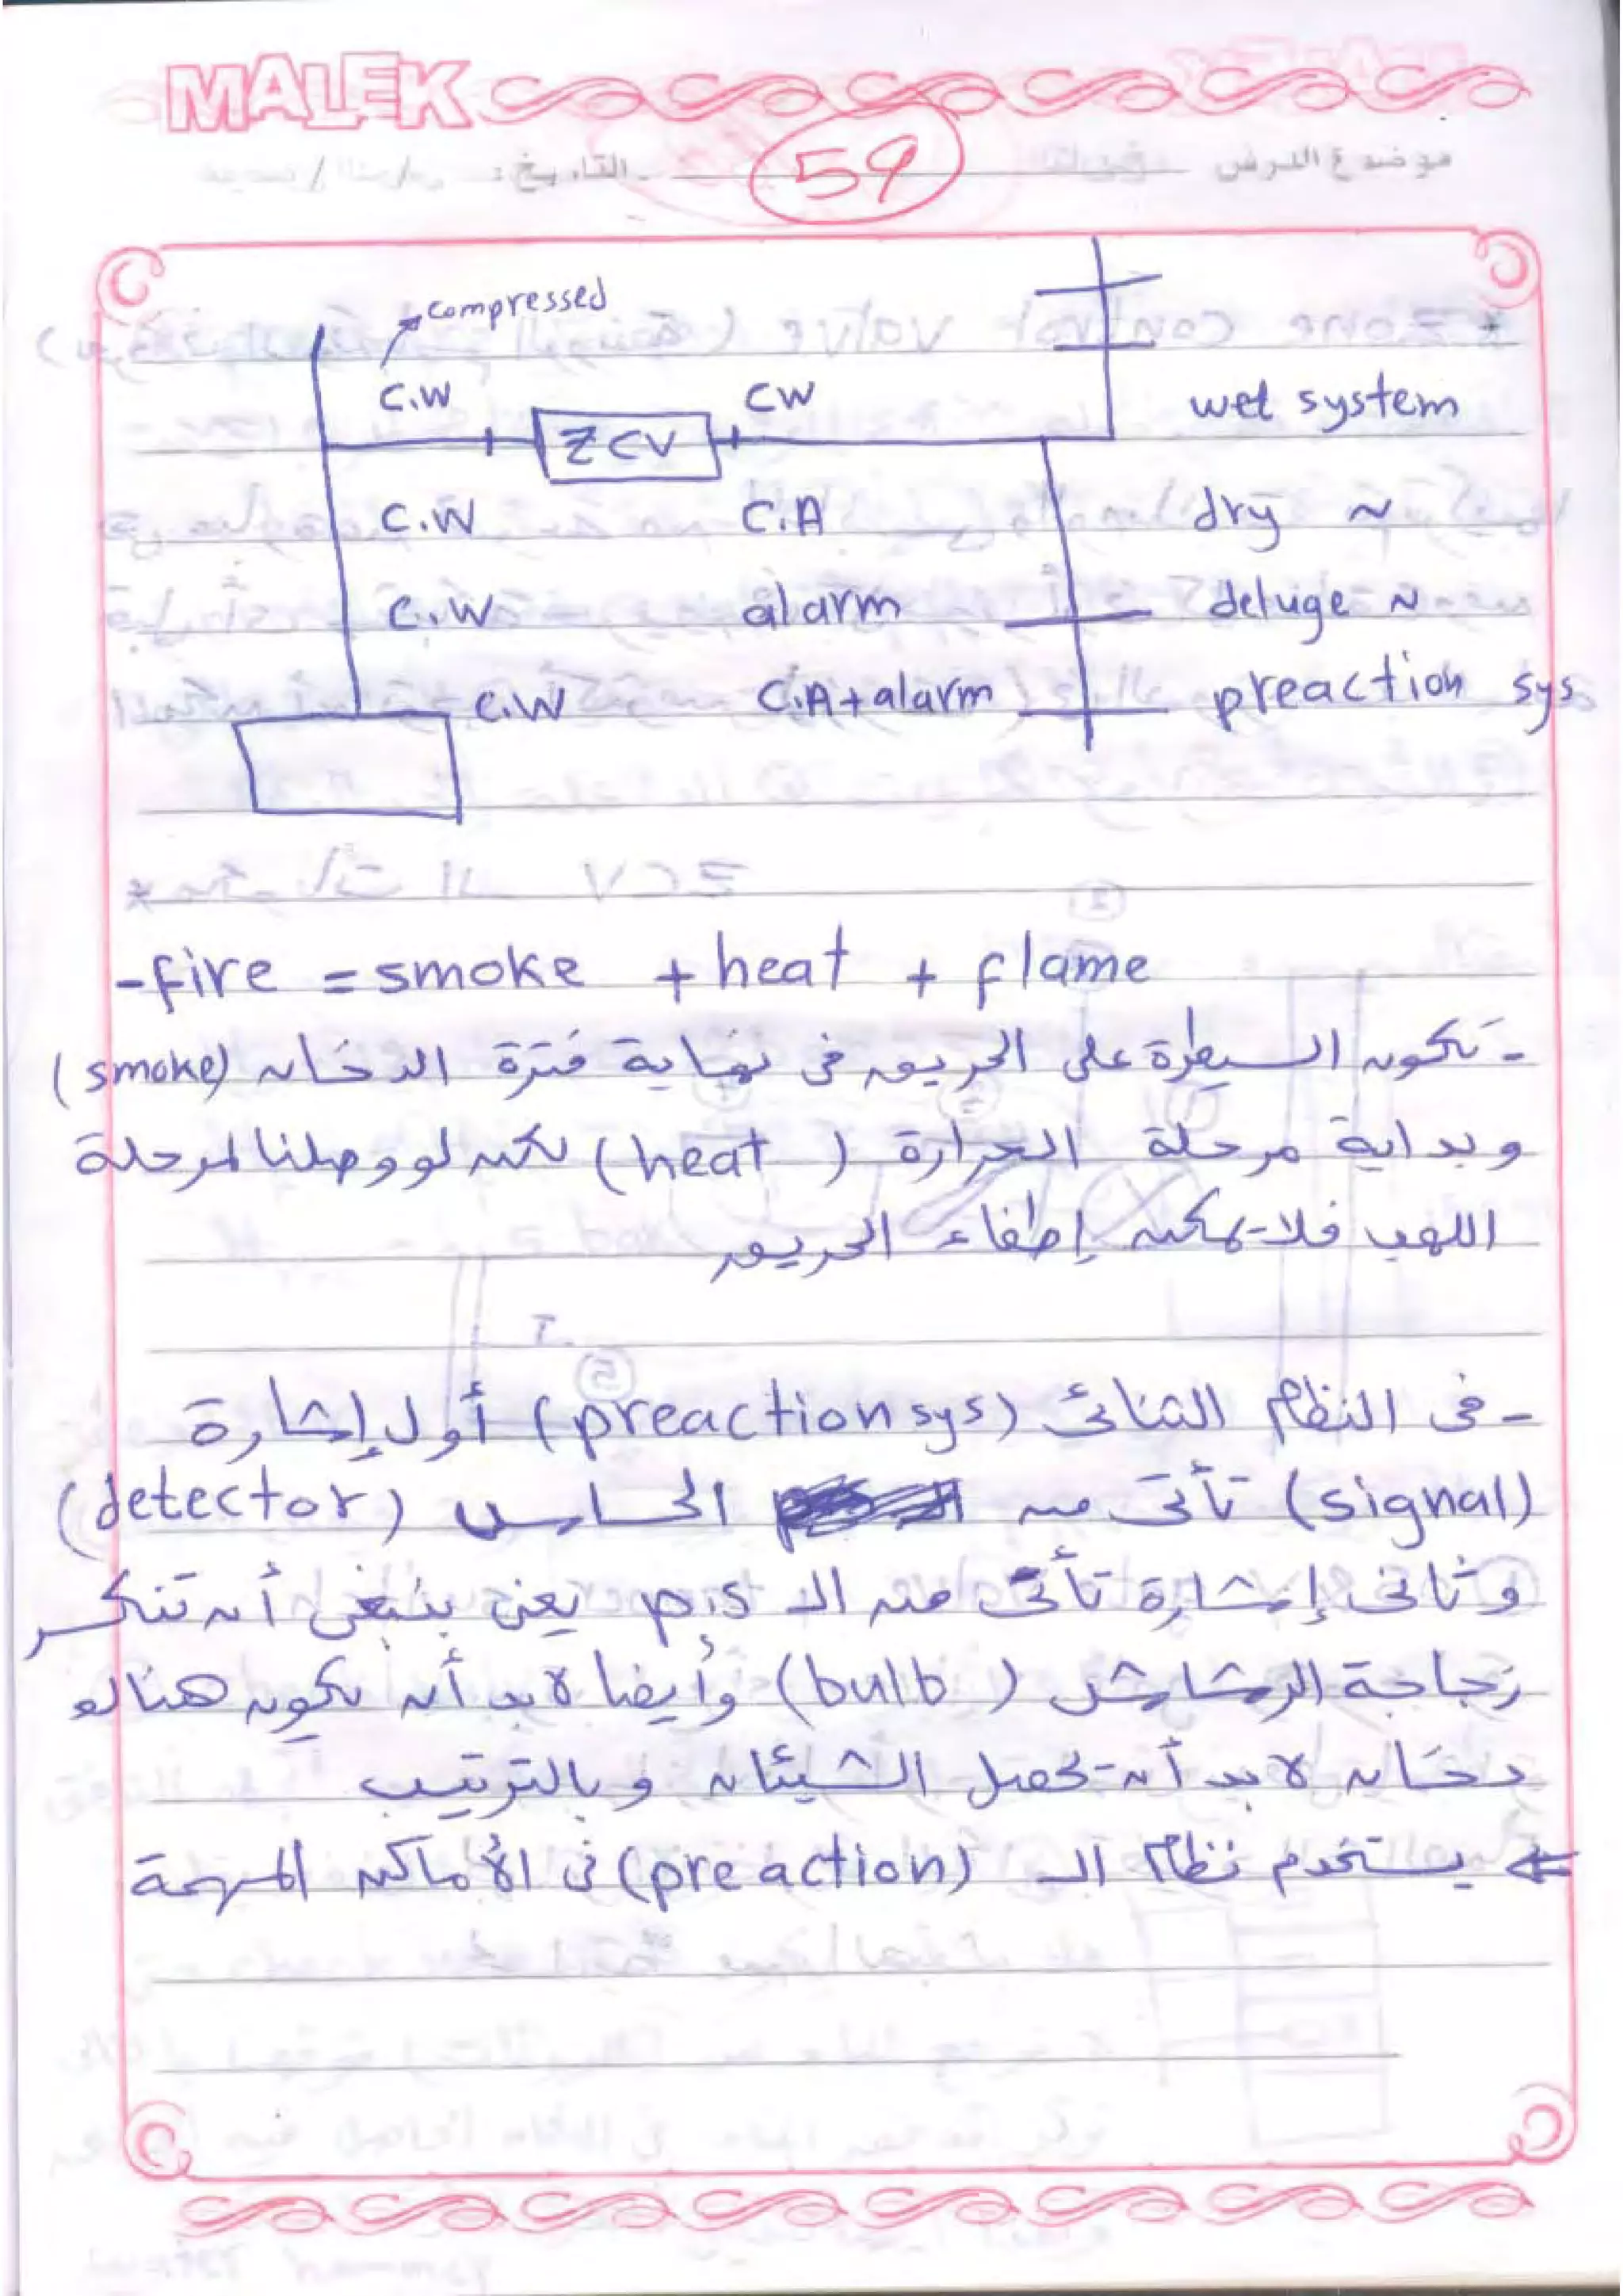 MALEK
59
موضوع الدرس
التاريخ:
compressed
C.W CW wet system
ZCV
C.W C.A dry ~
C.W alarm deluge ~
C.W C.A+alarm preaction sys
-fire = smoke + heat + flame
- تكون السيطرة على الحريق فى نهاية فترة الدخان (smoke)
وبداية مرحلة الحرارة (heat) لكن لو وصلنا لمرحلة
اللهب فلا يمكن إطفاء الحريق
- فى النظام الثنائى (preaction sys) أول إشارة
(signal) تأتى من الحساس (detector)
وثانى إشارة تأتى من الـ p.s يعنى ينبغى أن تنكسر
زجاجة الرشاش (bulb) وأيضا لابد أن يكون هناك
دخان لابد أن يحصل الشيئان وبالترتيب
⇐ يستخدم نظام الـ (preaction) فى الأماكن المهمة